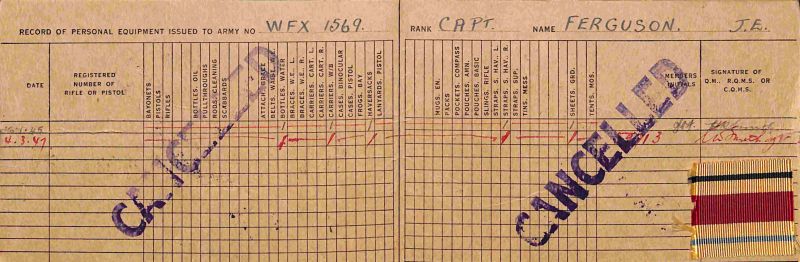 RECORD OF PERSONAL EQUIPMENT ISSUED TO ARMY NO WFX 1569. RANK CAPT. NAME FERGUSON. J.E.
DATE
REGISTERED NUMBER OF RIFLE OR PISTOL
BAYONETS
PISTOLS
RIFLES
BOTTLES, OIL
PULLTHROUGHS
RODS/CLEANING
SCABBARDS
BELTS, WAIST
BOTTLES, WATER
BRACES, W.E. L.
BRACES, W.E. R.
CARRIERS, CART. L.
CARRIERS, CART. R.
CARRIERS, W/B
CASES, BINOCULAR
CASES, PISTOL
FROGS, BAY
HAVERSACKS
LANYARDS, PISTOL
MUGS, EN.
PACKS
POCKETS, COMPASS
POUCHES, AMN.
POUCHES, BASIC
SLINGS, RIFLE
STRAPS, S. HAV. L.
STRAPS, S. HAV. R.
STRAPS, SUP.
TINS, MESS
SHEETS, GRD.
TENTS, MOS.
MEMBERS INITIALS
SIGNATURE OF Q.M., R.Q.M.S. OR C.Q.M.S.
4.3.47
CANCELLED
CANCELLED